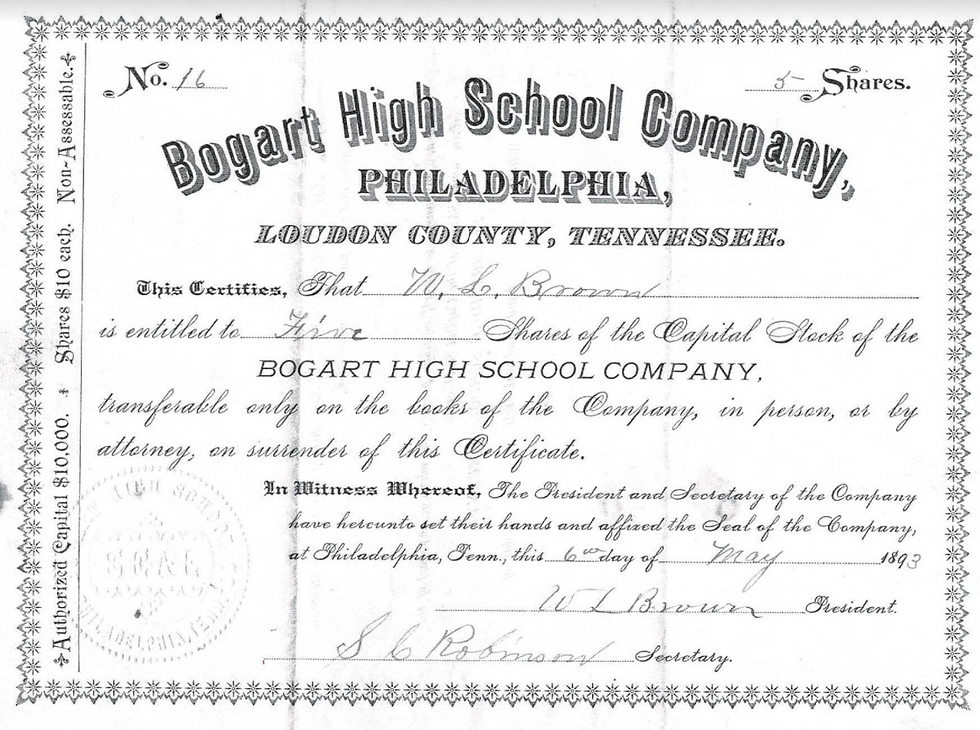 No. 16
5 Shares.
Bogart High School Company,
PHILADELPHIA,
LOUDON COUNTY, TENNESSEE.
This Certifies, That W. L. Brown
is entitled to Five Shares of the Capital Stock of the
BOGART HIGH SCHOOL COMPANY,
transferable only on the books of the Company, in person, or by
attorney, on surrender of this Certificate.
In Witness Whereof, The President and Secretary of the Company
have hereunto set their hands and affixed the Seal of the Company,
at Philadelphia, Tenn., this 6 day of May 1893
W L Brown President.
S C Robinson Secretary.
Authorized Capital $10,000. Shares $10 each. Non-Assessable.
HIGH SCHOOL
PHILADELPHIA, TENN.